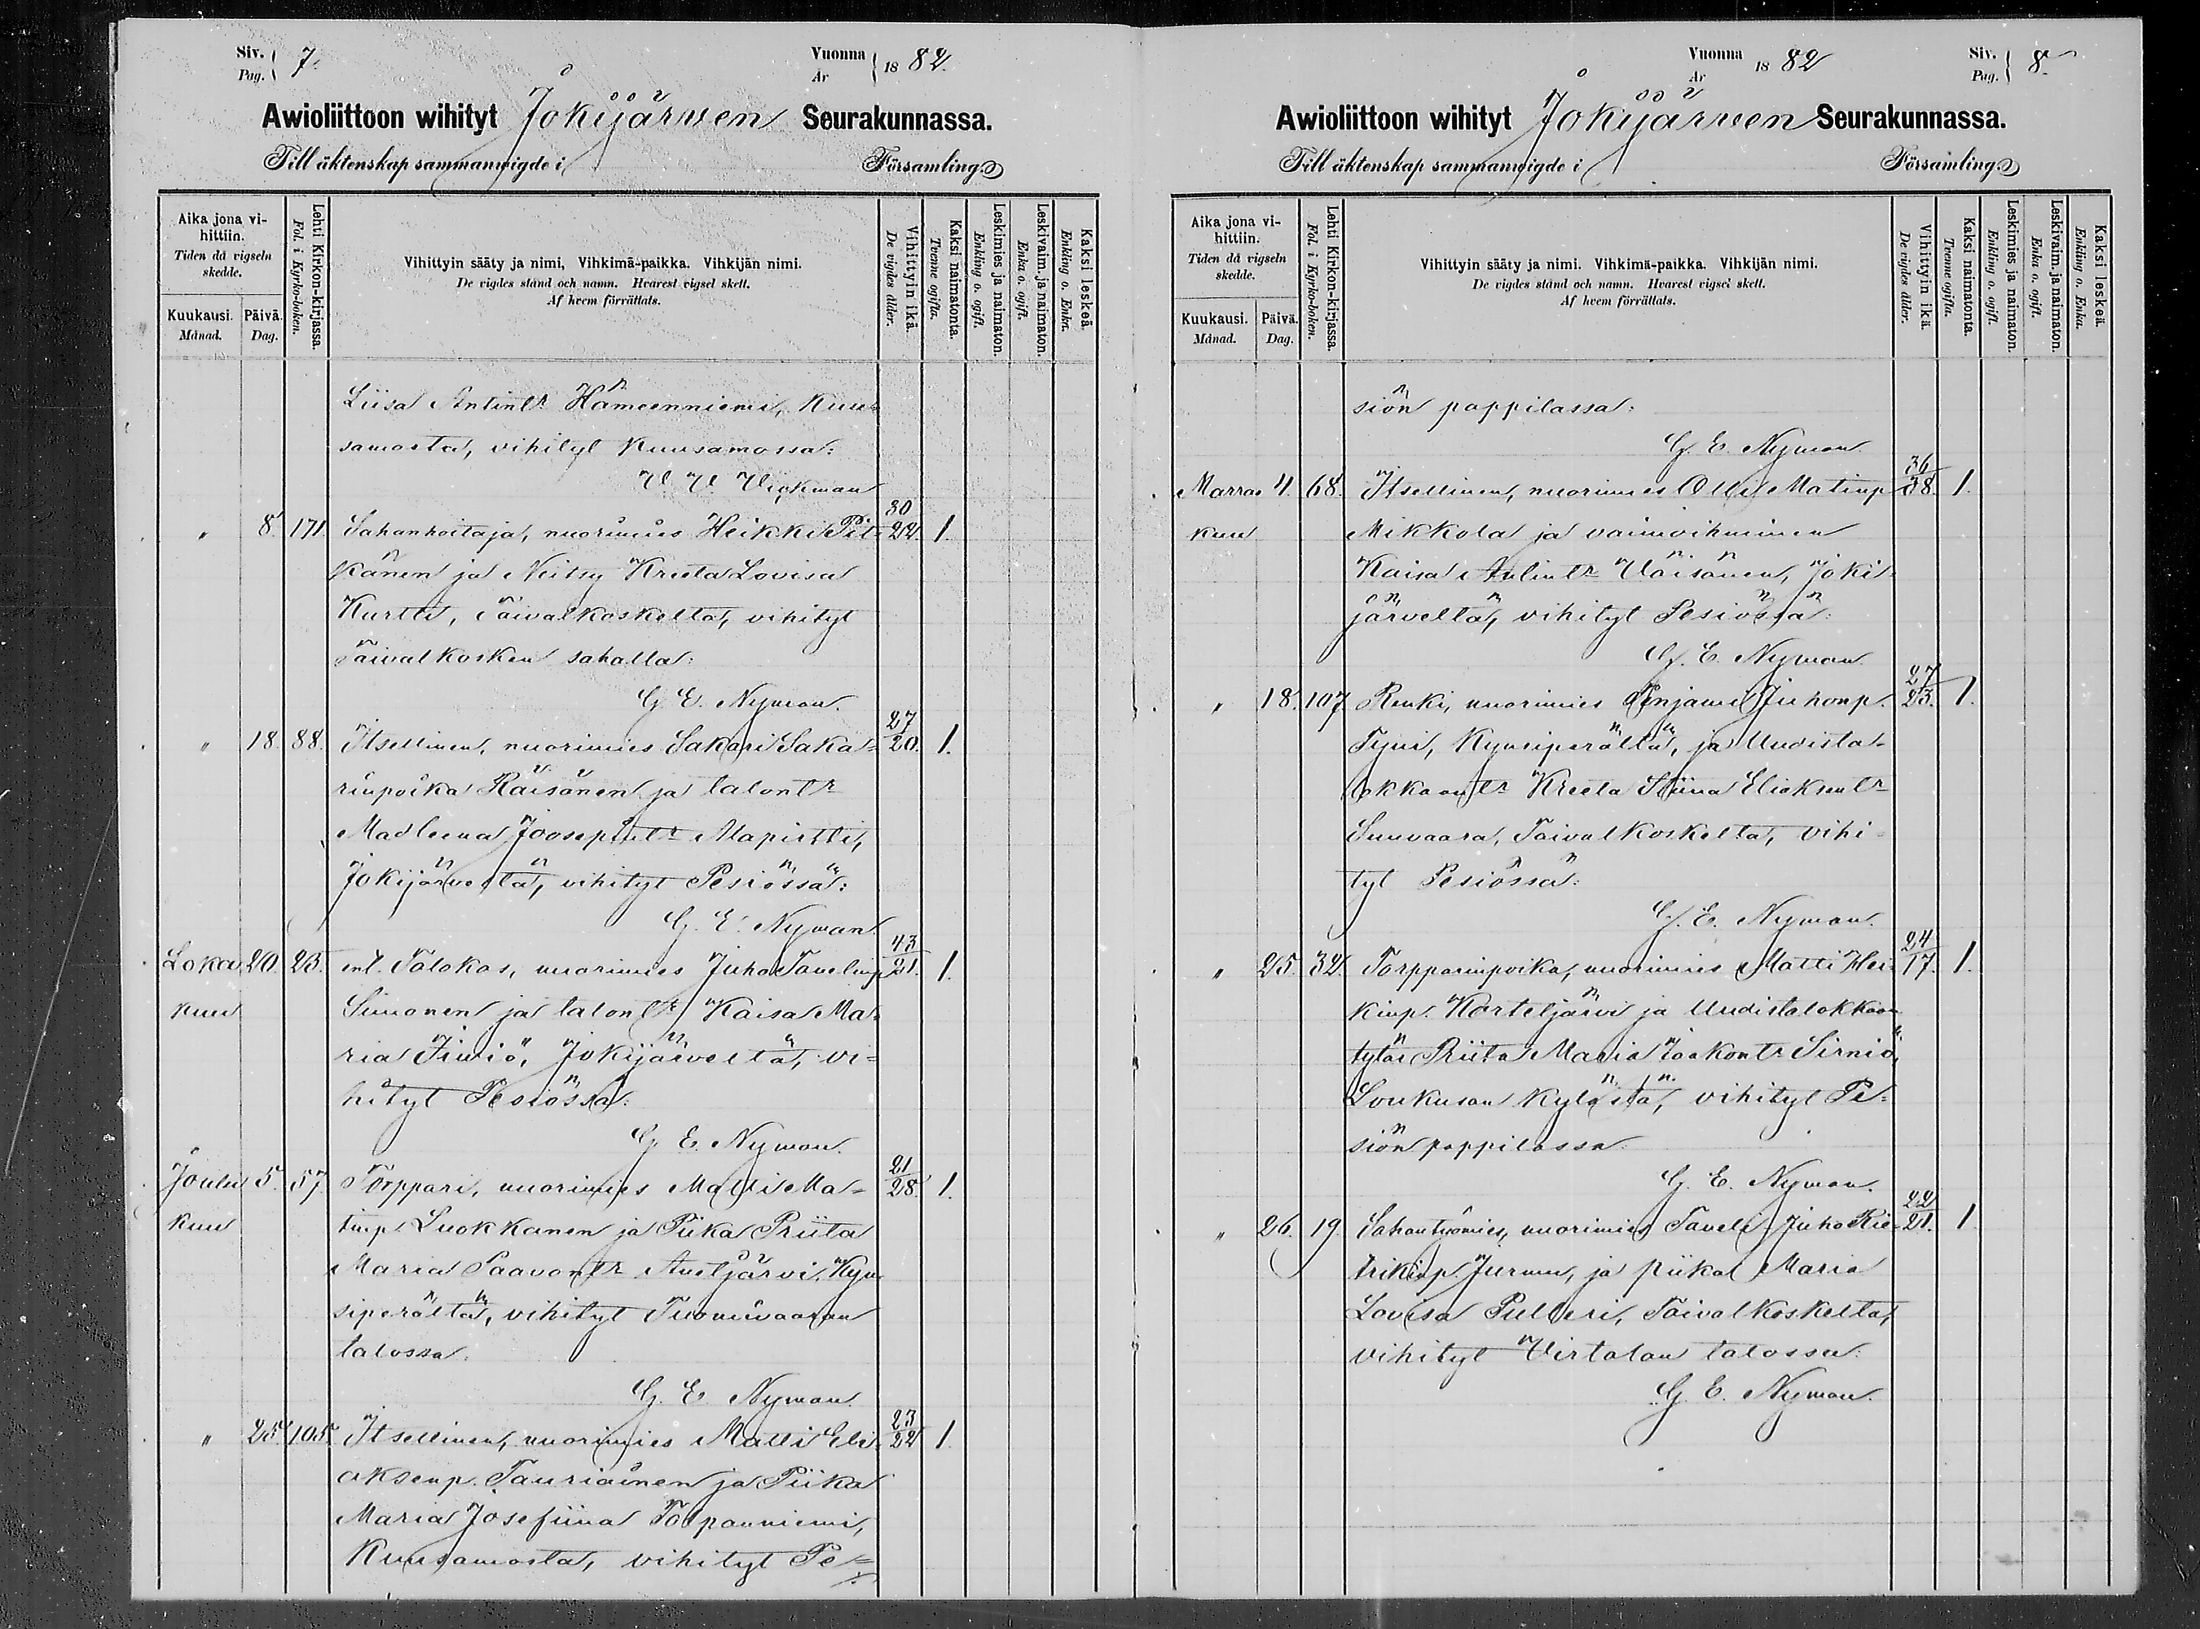 Siv. Pag. 7.
Vuonna År 1882.
Awioliittoon wihityt Jokijärwen Seurakunnassa.
Till äktenskap sammanwigde i Församling.
Aika jona vihittiin.
Tiden då vigseln skedde.
Kuukausi. Månad.
Päivä. Dag.
Lehti Kirkon-kirjassa.
Fol. i Kyrko-boken.
Vihittyin sääty ja nimi, Vihkimä-paikka. Vihkijän nimi.
De vigdes stånd och namn. Hvarest vigsel skett.
Af hvem förrättats.
Vihittyin ikä.
De vigdes ålder.
Kaksi naimatonta.
Tvenne ogifta.
Leskimies ja naimaton.
Enkling o. ogift.
Leskivaim. ja naimaton.
Enka o. ogift.
Kaksi leskeä.
Enkling o. Enka.
Liisa Antintr Hämeenniemi, Kuu-
samosta, vihityt Kuusamossa:
Wickman
" 8. 171. Sahanhoitaja, nuorimies Heikki Pit- 30/22 1.
känen ja Neitsy Kreeta Lovisa
Kurtti, Taivalkoskelta, vihityt
Taivalkosken sahalla:
G. E. Nyman.
" 18. 88. Itsellinen, nuorimies Sakari Saka- 27/20. 1.
rinpoika Räisänen ja talontr
Madleena Joosepintr Mapirtti,
Jokijärveltä, vihityt Pesiössä:
G. E. Nyman.
Loka 20. 23. ent. Talokas, nuorimies Juho Taavelinp 43/21. 1.
kuu Simonen ja talontr Kaisa Ma-
ria Jiviö, Jokijärveltä, vi-
hityt Pesiössä:
G. E. Nyman.
Joulu 5. 57. Torppari, nuorimies Matti Ma- 21/28. 1.
kuu tinp. Luokkanen ja Piika Priita
Maria Paavontr Autjärvi, Kyn-
siperältä, vihityt Tuomivaaran
talossa:
G. E. Nyman.
" 25. 105. Itsellinen, nuorimies Matti Eli- 23/22 1.
aksenp. Tauriainen ja Piika
Maria Josefiina Tolpanniemi,
Kuusamosta, vihityt Pe-
Vuonna År 1882
Siv. Pag. 8.
Awioliittoon wihityt Jokijärwen Seurakunnassa.
Till äktenskap sammanwigde i Församling.
Aika jona vihittiin.
Tiden då vigseln skedde.
Kuukausi. Månad.
Päivä. Dag.
Lehti Kirkon-kirjassa.
Fol. i Kyrko-boken.
Vihittyin sääty ja nimi. Vihkimä-paikka. Vihkijän nimi.
De vigdes stånd och namn. Hvarest vigsel skett.
Af hvem förrättats.
Vihittyin ikä.
De vigdes ålder.
Kaksi naimatonta.
Tvenne ogifta.
Leskimies ja naimaton.
Enkling o. ogift.
Leskivaim. ja naimaton.
Enka o. ogift.
Kaksi leskeä.
Enkling o. Enka.
siön pappilassa:
G. E. Nyman.
Marras 4. 68. Itsellinen, nuorimies Olli Matinp 36/38. 1.
kuu Mikkola ja vaimoihminen
Kaisa Antintr Väisänen, Joki-
järveltä, vihityt Pesiössä:
G. E. Nyman.
" 18. 107 Renki, nuorimies Penjami Juhonp. 27/23. 1.
Tyni, Kynsiperältä, ja Uudista-
lokkaantr Kreeta Stiina Eliaksentr
Suuvaara, Taivalkoskelta, vihi-
tyt Pesiössä:
G. E. Nyman.
" 25. 32 Torpparinpoika, nuorimies Matti Hei- 24/17. 1.
kinp. Korteljärvi ja Uudistalokkaan
tytär Priita Maria Jaakontr Sirniö,
Loukusan kylästä, vihityt Pe-
siön pappilassa
G. E. Nyman.
" 26. 19. Sahantyömies, nuorimies Taneli Juho Rie- 22/21. 1
trikinp. Jurmu, ja piika Maria
Lovisa Pulleri, Taivalkoskelta,
vihityt Virtalan talossa:
G. E. Nyman.